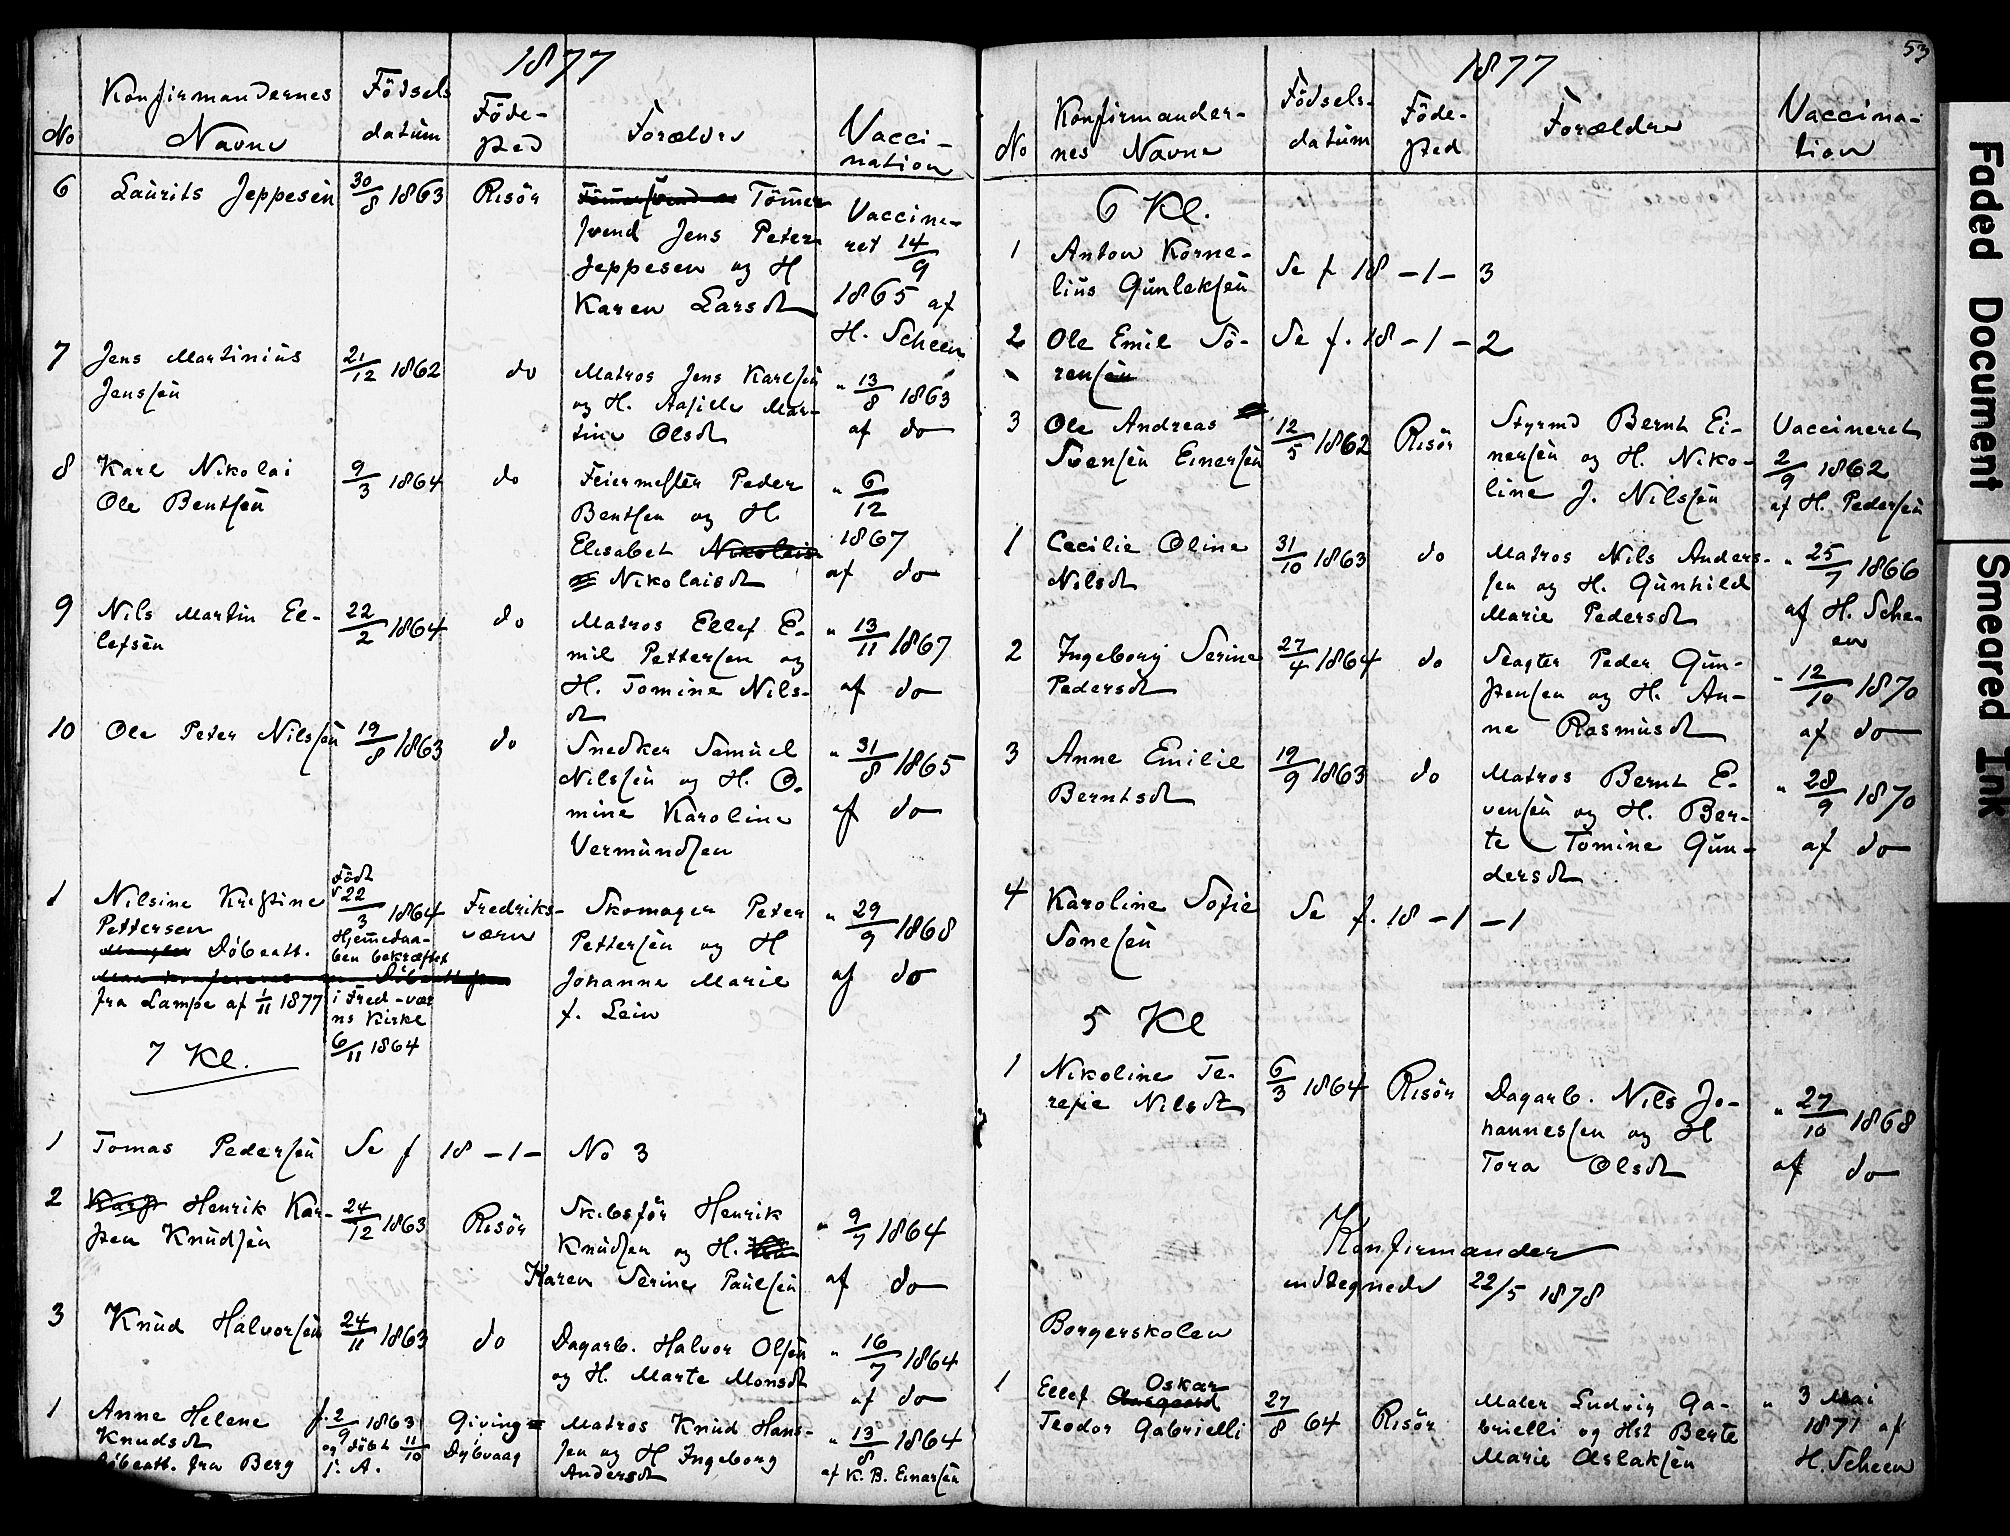 1877
No
Konfirmandernes
Navne
Födsels
datum
Föde-
sted
Forældre
Vacci-
nation
6 Laurits Jeppesen 30/8 1863 Risör Tömer
svend Jens Peter
Jeppesen og H
Karen Larsdt
Vaccine-
ret 14/9
1865 af
H. Scheen
7 Jens Martinius
Jenssen
21/12 1862 do
Matros Jens Karlsen
og H. Mar-
tine Olsdt
" 13/8 1863
af do
8 Karl Nikolai
Ole Bentsen
9/3 1864 do
Feiermester Peder
Bentsen og H.
Elisabet Nikolais
Nikolaisdt
" 6/12
1867
af do
9 Nils Martin El-
lefsen
22/2 1864 do
Matros Ellef E-
mil Pettersen og
H. Tomine Nils-
dt
" 13/11 1867
af do
10 Ole Peter Nilssen 19/8 1863 do
Snedker Samuel
Nilssen og H. O-
mine Karoline
Vermundsen
" 31/8 1865
af do
1 Nilsine Kristine
Pettersen
Döbeatt.
fra Lampe af 1/11 1877
Födt
22/3 1864
Hjemmedaa-
ben bekræftet
i Fred-vær
ns Kirke
6/11 1864
Fredriks-
værn
Skomager Peter
Pettersen og H
Johanne Marie
f. Lein
" 29/9 1868
af do
7 Kl.
1 Tomas Pedersen Se f 18 -1- No 3
2 Henrik Kar-
sten Knudsen
24/12 1863 Risör
Skibsför Henrik
Knudsen og H.
Karen Serine Paulsen
" 9/7 1864
af do
3 Knud Halvorsen 24/11 1863 do
Dagarb. Halvor Olsen
og H. Marte Monsdt
" 16/7 1864
af do
1 Anne Helene
Knudsdt
Döbeatt. fra Berg
f. 2/9 1863
og döbt 11/10
s. A.
Giving
Dybvaag
Matros Knud Hans-
sen og H Ingeborg
Andersdt
" 13/8 1864
af K. B. Einarsen
53
1877
No
Konfirmander-
nes Navne
Födsels-
datum
Föde-
sted
Forældre
Vaccina-
tion
6 Kl.
1 Anton Korne-
lius Gunleksen
Se f 18 -1- 3
2 Ole Emil Sö-
rensen
Se f. 18 -1- 2
3 Ole Andreas
Svensen Einersen
12/5 1862 Risör
Styrmd Bernt Ei-
nersen og H. Niko-
line J. Nilssen
Vaccineret
2/9 1862
af H. Pedersen
1 Cecilie Oline
Nilsdt
31/10 1863 do
Matros Nils Anders-
sen og H. Gunhild
Marie Pedersdt
" 25/7 1866
af H. Sche-
en
2 Ingeborg Serine
Pedersdt
27/4 1864 do
Slagter Peder Gun-
stensen og H. An-
ne Rasmusdt
" 12/10 1870
af do
3 Anne Emilie
Berntsdt
19/9 1863 do
Matros Bernt E-
vensen og H. Ber-
te Tomine Gun-
dersdt
" 28/9 1870
af do
4 Karoline Sofie
Sonesen
Se f. 18 -1 -1
5 Kl
1 Nikoline Te-
resie Nilsdt
6/3 1864 Risör
Dagarb. Nils Jo-
hannessen og H
Tora Olsdt
" 27/10 1868
af do
Konfirmander
indtegnede 22/5 1878
Borgerskolen
1 Ellef Oskar
Teodor Gabrielli
27/8 64 Risör
Maler Ludvig Ga-
brielli og Hst Berte
Marie Aslaksen
" 3 Mai
1871 af
H. Scheen
Faded Document
Smeared Ink